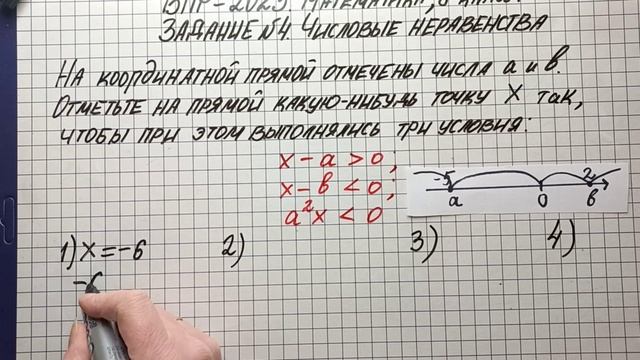 ВПР-2023. МАТЕМАТИКА, 8 КЛАСС.
ЗАДАНИЕ №4. ЧИСЛОВЫЕ НЕРАВЕНСТВА
НА КООРДИНАТНОЙ ПРЯМОЙ ОТМЕЧЕНЫ ЧИСЛА а и в.
ОТМЕТЬТЕ НА ПРЯМОЙ КАКУЮ-НИБУДЬ ТОЧКУ Х ТАК,
ЧТОБЫ ПРИ ЭТОМ ВЫПОЛНЯЛИСЬ ТРИ УСЛОВИЯ:
х - а > 0;
х - в < 0;
а²х < 0
-5 2
а 0 в
1) х = -6 2) 3) 4)
-6